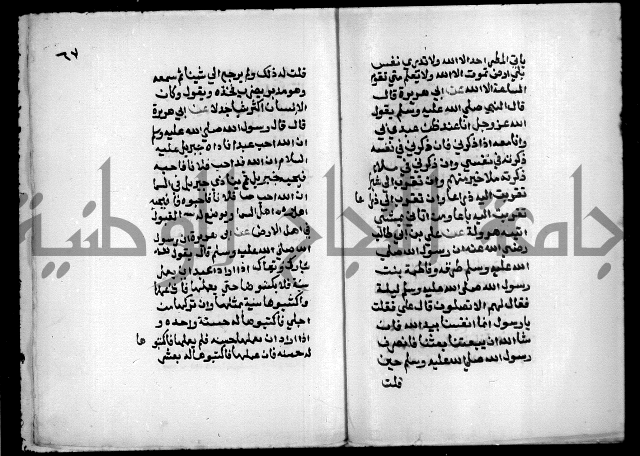 ياتي المطر احد الا الله ولا تدري نفس
باي ارض تموت الا الله ولا يعلم متى تقوم
الساعة الا الله عن ابي هريرة قال
قال النبي صلي الله عليه وسلم يقول
الله عز وجل انا عند ظن عبدي بي
وانا معه اذا ذكرني فان ذكرني في نفسه
ذكرته في نفسي وان ذكرني في ملاء
ذكرته ملا خير منهم وان تقرب الي شبرا
تقربت اليه ذراعا وان تقرب الي ذرا
عا
تقربت اليه باعا ومن اتاني يمشي
اتيته هرولة عن علي بن ابي طالب
رضي الله عنه ان رسول الله صلى
الله عليه وسلم طرقه وفاطمة بنت
رسول الله صلى الله عليه وسلم ليلة
فقال لهم الا تصلون قال علي فقلت
يا رسول الله انما انفسنا بيد الله فاذا
شا الله ان يبعثنا بعثنا فانصرف
رسول الله صلى الله عليه وسلم حين
قلت
٦٧
قلت له ذلك ولم يرجع الي شيئا ثم سمعه
وهو مدبر يضرب فخذه ويقول وكان
الانسان اكثر شي جدلا عن ابي هريرة
قال قال رسول الله صلى الله عليه وسلم
ان الله احب عبدا نادا جبريل عليه
السلام ان الله قد احب فلانا فاحبه
فيحبه جبريل ثم ينادي جبريل في السما
ان الله احب فلانا فاحبوه فيحبه
اهل السما ويوضع له القبول
في اهل الارض عن ابي هريرة ان رسول
الله صلي الله عليه وسلم قال يقول الله
تبارك وتعالى اذا اراد عبدي ان يعمل
سية فلا يكتبوها حتى يعملها فان عملها
فاكتبوها سية بمثلها وان تركها من
اجلي فاكتبوها له حسنة واحده و
اذا اراد ان يعمل حسنه فلم يعملها فاكتبو
ها
له حسنه فان عملها فاكتبوها له بعشر
جامعة النجاح الوطنية